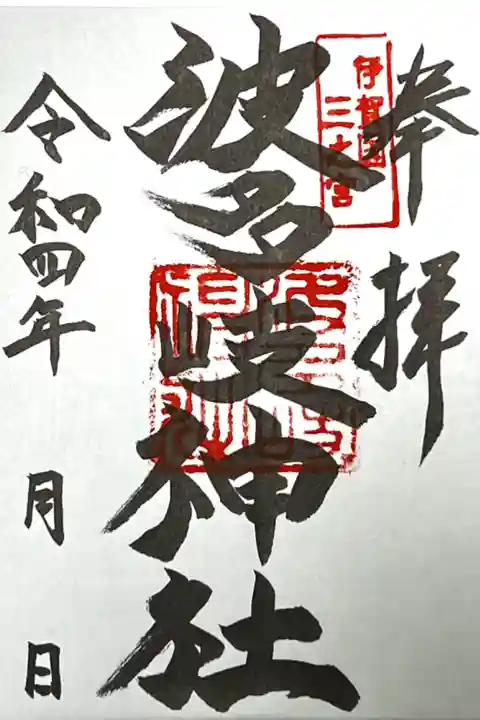 奉拝
伊賀国
三之宮
波多岐神社
令和四年 月 日